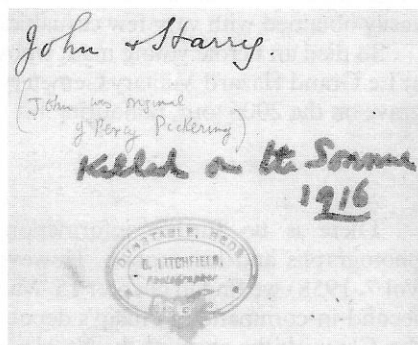 John & Harry.
(John was original
of Percy Pickering)
Killed on the Somme
1916
DUNSTABLE, BEDS
LITCHFIELD,
Photographer